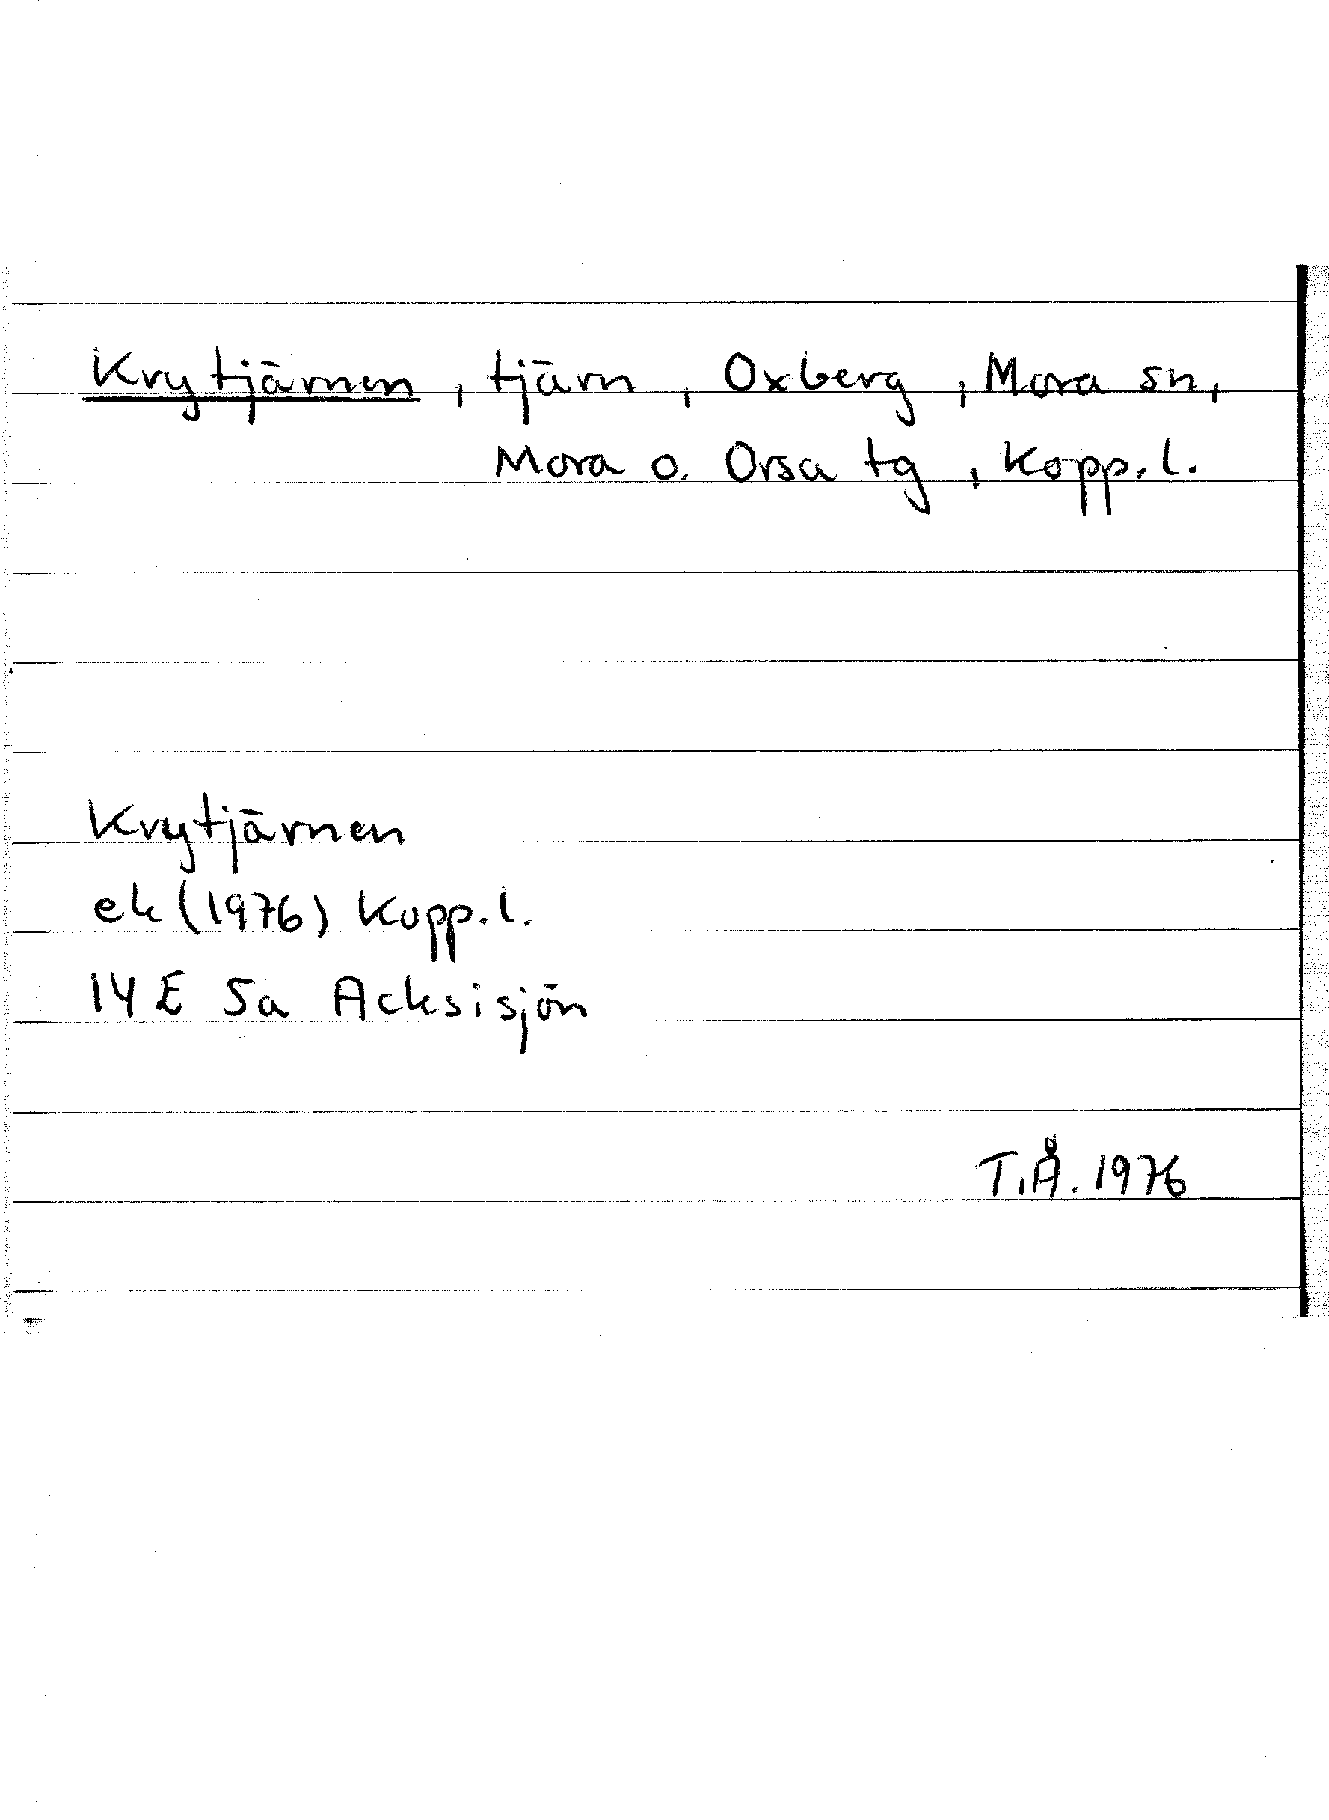 Krytjärnen, tjärn, Oxberg, Mora sn,
Mora o. Orsa tg, Kopp. l.
Krytjärnen
ek (1976) Kopp. l.
14 E 5a Acksisjön
T.Å. 1976